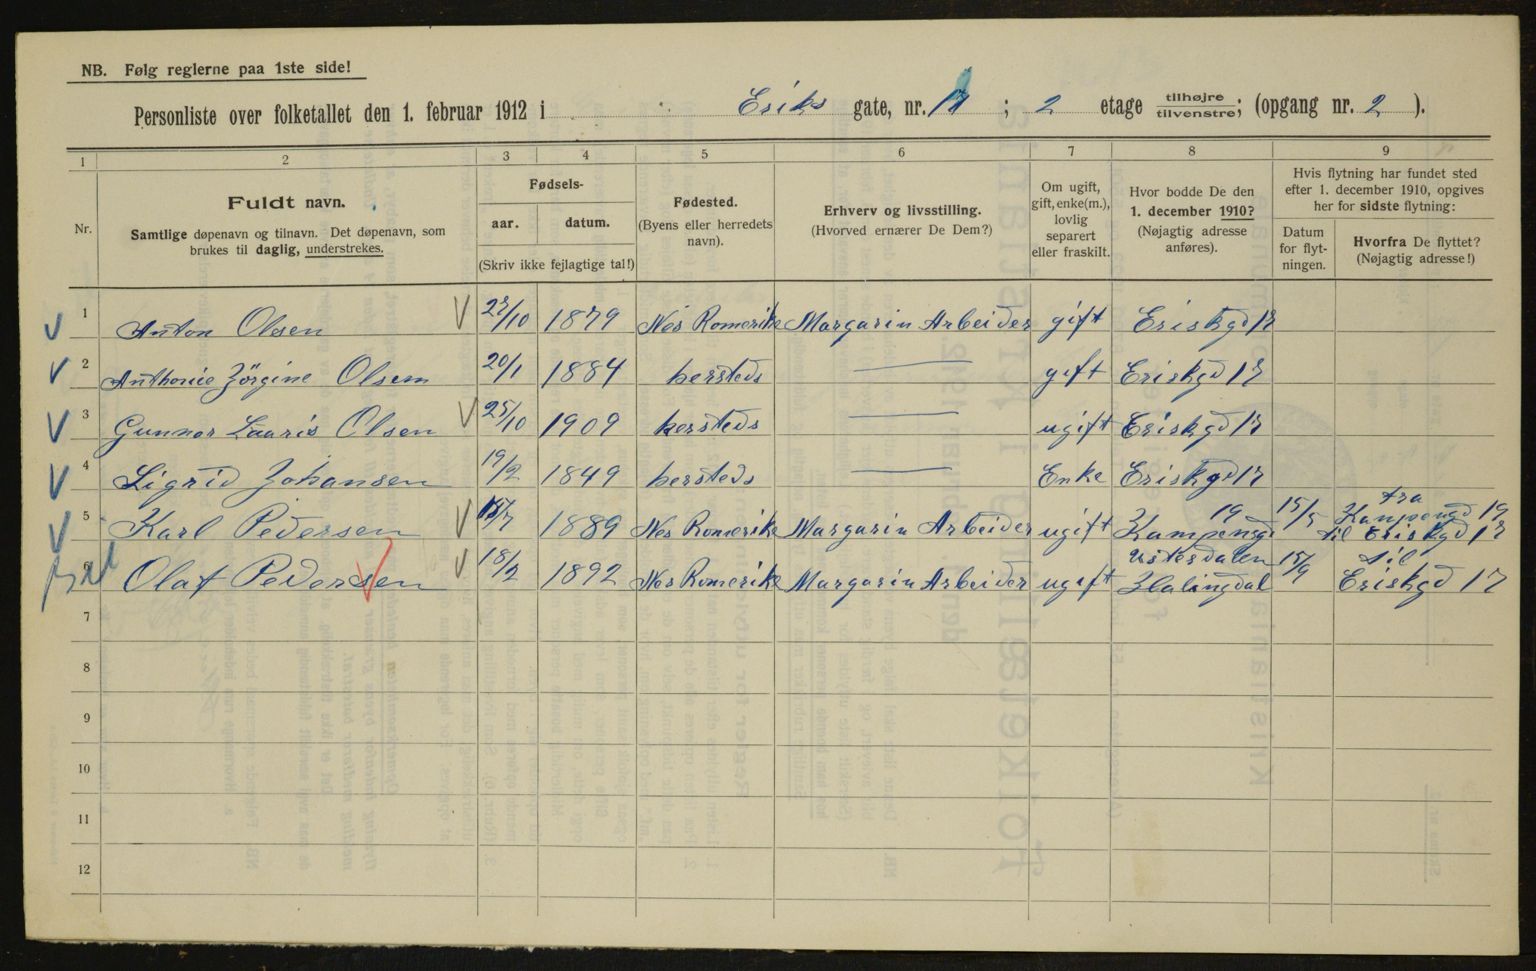 NB. Følg reglerne paa 1ste side!
Personliste over folketallet den 1. februar 1912 i Eriks gate, nr. 17 ; 2 etage tilhøjre tilvenstre; (opgang nr. 2 ).
1 2 3 4 5 6 7 8 9
Nr.
Fuldt navn.
Samtlige døpenavn og tilnavn. Det døpenavn, som
brukes til daglig, understrekes.
Fødsels-
aar. datum.
(Skriv ikke fejlagtige tal!)
Fødested.
(Byens eller herredets
navn).
Erhverv og livsstilling.
(Hvorved ernærer De Dem?)
Om ugift,
gift, enke(m.),
lovlig
separert
eller fraskilt.
Hvor bodde De den
1. december 1910?
(Nøjagtig adresse
anføres).
Hvis flytning har fundet sted
efter 1. december 1910, opgives
her for sidste flytning:
Datum
for flyt-
ningen.
Hvorfra De flyttet?
(Nøjagtig adresse!)
1 Anton Olsen /10 1879 Nes Romerike Margarin Arbeider gift Eriskgd 17
2 Anthonie Jörgine Olsen 20/1 1884 hersteds — gift Eriskgd 17
3 Gunnar Lauris Olsen 25/10 1909 hersteds — ugift Eriskgd 17
4 Sigrid Johansen 19/2 1849 hersteds — Enke Eriskgd 17
5 Karl Pedersen /7 1889 Nes Romerike Margarin Arbeider ugift Kampengd 19 15/5 fra Kampengd 19 til Eriskgd 17
6 Olaf Pedersen 18/2 1892 Nes Romerike Margarin Arbeider ugift Ustesdalen Halingdal 15/9 til Eriskgd 17
7
8
9
10
11
12